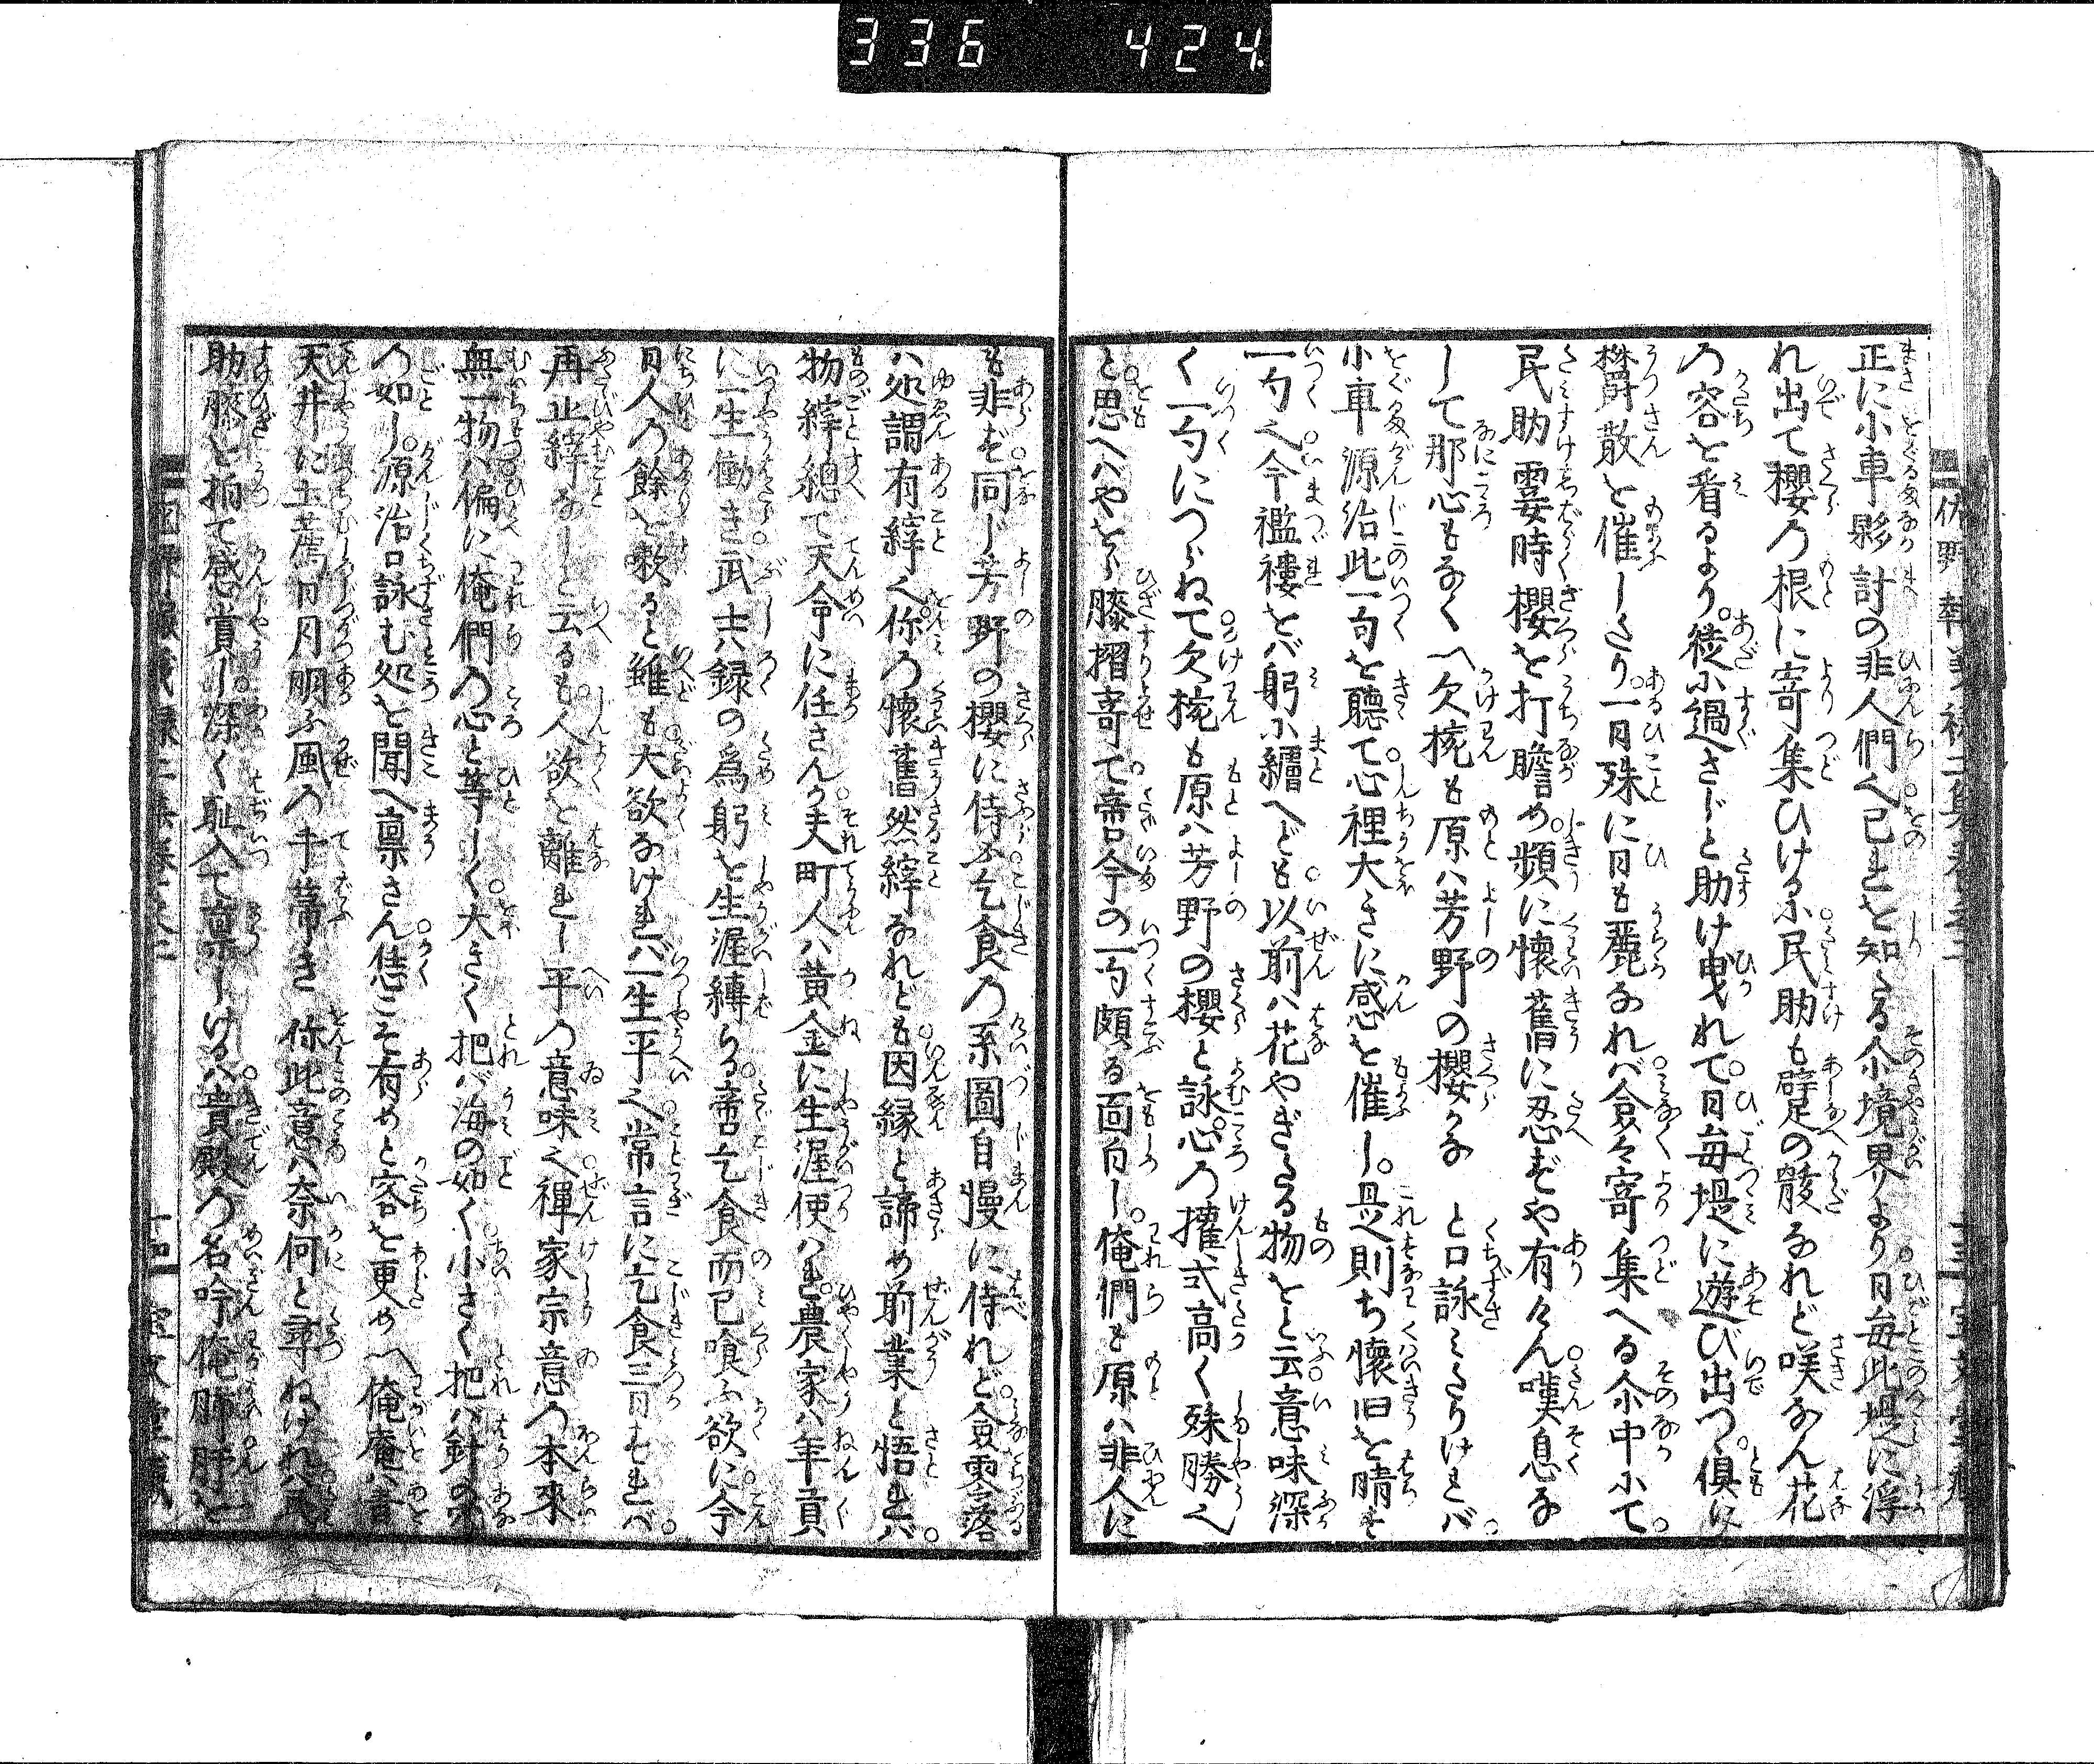 336 424.
正に小車夥計の非人們ハ己まを知たる尒境界より日毎此堤に浮
れ出て櫻乃根に寄集ひける尒民助も躄の骸なれど咲なん花
乃容を看るより。徒尒過さじと助け曳れて。日毎堤に遊び出つ。倶に
欝散を催したり。一日殊に日も麗なれバ。僉々寄集へる尒中尒て。
民助霎時櫻を打瞻め。頻に懐舊に忍ずや有けん。嘆息な
して那心もなく〽欠椀も原ハ芳野の櫻かな と口詠ミたりけれバ。
小車源治此一句を聽て。心裡大きに感を催し。是則ち懐旧を晴す
一句也。今襤褸をバ躬尒纏へども。以前ハ花やぎたる物をと云。意味深
く一句につらねて。欠椀も原ハ芳野の櫻と詠。心乃權式高く殊勝也
と。思へバやをら膝摺寄て。啻今の一句頗る面白し。俺們も原ハ非人に
も非ず。同じ芳野の櫻に侍ふ。乞食乃系圖自慢に侍れど。僉零落
ハ処謂有縡也。你乃懐舊然縡なれども。因縁と諦め前業と悟れバ。
物縡總て天命に任さんか。夫町人ハ黄金に生涯使ハれ。農家ハ年貢
に一生働き。武士ハ録の爲躬を生涯縛らる。啻乞食而已喰ふ欲に。今
日人乃餘を欶ると雖も。大欲なけれバ一生平也。常言に乞食三日せれバ。
再止縡なしと云るも。人欲を離れし平乃意味也。禅家宗意乃本來
無一物ハ。偏に俺們乃心と等しく。大きく把バ海の如く。小さく把バ針の穴
乃如し。源治口詠む処を聞へ禀さん。恁こそ有めと容を更め〽俺庵ハ昔
天井に土蓆日月明ふ風乃手箒き 你此意ハ奈何と尋ねけれバ。民
助膝を拍て感賞し。深く耻入て禀しけるハ。貴殿乃名吟俺肺肝を